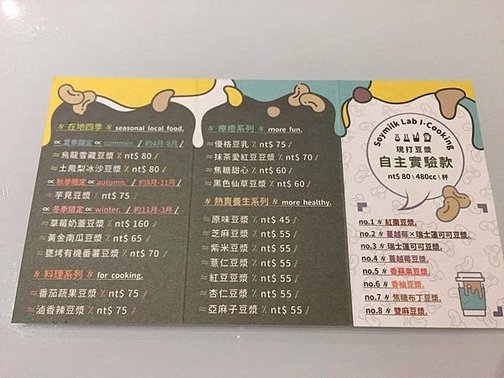 # 在地四季 # seasonal local food.
∝ 夏季限定 ∝ summer. / 約4月-8月 /
≈烏龍雪藏豆漿 ٪ nt$ 80 /
≈土鳳梨冰沙豆漿 ٪ nt$ 80 /
∝ 秋季限定 ∝ autumn. / 約8月-11月 /
≈芋見豆漿 ٪ nt$ 75 /
∝ 冬季限定 ∝ winter. / 約11月-3月 /
≈草莓奶蓋豆漿 ٪ nt$ 160 /
≈黃金南瓜豆漿 ٪ nt$ 65 /
≈甕烤有機番薯豆漿 ٪ nt$ 70 /
# 料理系列 # for cooking.
≈番茄蔬果豆漿 ٪ nt$ 75 /
≈滷香辣豆漿 ٪ nt$ 75 /
# 療癒系列 # more fun.
≈優格豆乳 ٪ nt$ 75 /
≈抹茶愛紅豆豆漿 ٪ nt$ 70 /
≈焦糖甜心 ٪ nt$ 60 /
≈黑色仙草豆漿 ٪ nt$ 60 /
# 熱賣養生系列 # more healthy.
≈原味豆漿 ٪ nt$ 45 /
≈芝麻豆漿 ٪ nt$ 55 /
≈紫米豆漿 ٪ nt$ 55 /
≈薏仁豆漿 ٪ nt$ 55 /
≈紅豆豆漿 ٪ nt$ 55 /
≈杏仁豆漿 ٪ nt$ 55 /
≈亞麻子豆漿 ٪ nt$ 55 /
Soymilk Lab I-Cooking
現打豆漿
自主實驗款
nt$ 80 | 480cc | 杯
no.1 # 紅棗豆漿.
no.2 # 蔓越莓×瑞士蓮可可豆漿.
no.3 # 瑞士蓮可可豆漿.
no.4 # 蔓越莓豆漿.
no.5 # 香蘋果豆漿.
no.6 # 香柚豆漿.
no.7 # 焦糖布丁豆漿.
no.8 # 雙麻豆漿.